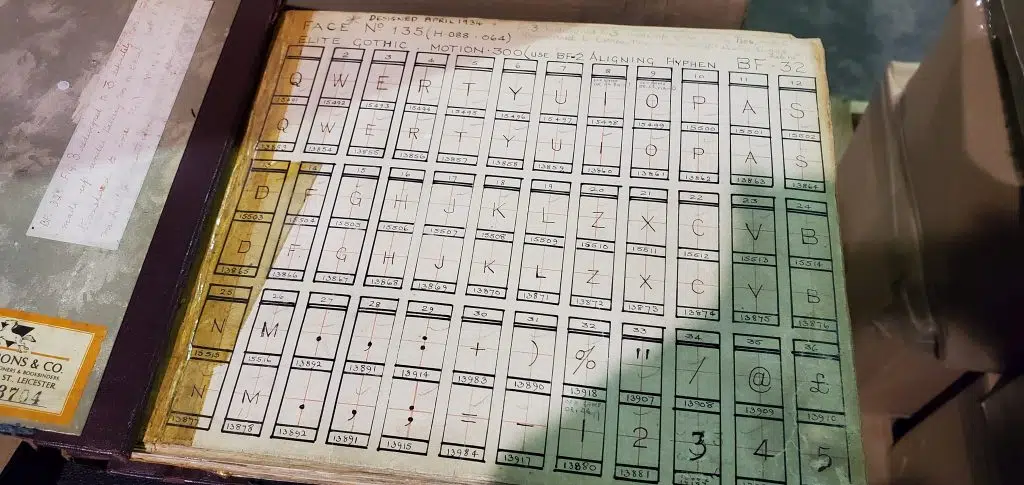 DESIGNED APRIL 1934.
FACE Nº 135 (H·088·064)
ELITE GOTHIC MOTION·300 (USE BF·2 ALIGNING HYPHEN BF-32
2 3 4 5 6 7 8 9 10 11 12
Q W E R T Y U I O P A S
15491 15492 15493 15494 15495 15496 15497 15498 15499 15500 15501 15502
Q W E R T Y U I O P A S
13853 13854 13855 13856 13857 13858 13859 13860 13861 13862 13863 13864
14 15 16 17 18 19 20 21 22 23 24
D F G H J K L Z X C V B
15503 15504 15505 15506 15507 15508 15509 15510 15511 15512 15513 15514
D F G H J K L Z X C V B
13865 13866 13867 13868 13869 13870 13871 13872 13873 13874 13875 13876
25 26 27 28 29 30 31 32 33 34 35 36
N M . , : + ) % " / @ £
15515 15516 13892 13891 13914 13983 13890 13918 13907 13908 13909 13910
N M . , ; = - 1 2 3 4 5
13877 13878 13892 13891 13915 13984 13917 13880 13881
ONS & CO.
ONERS & BOOKBINDERS,
ST. LEICESTER.
3704